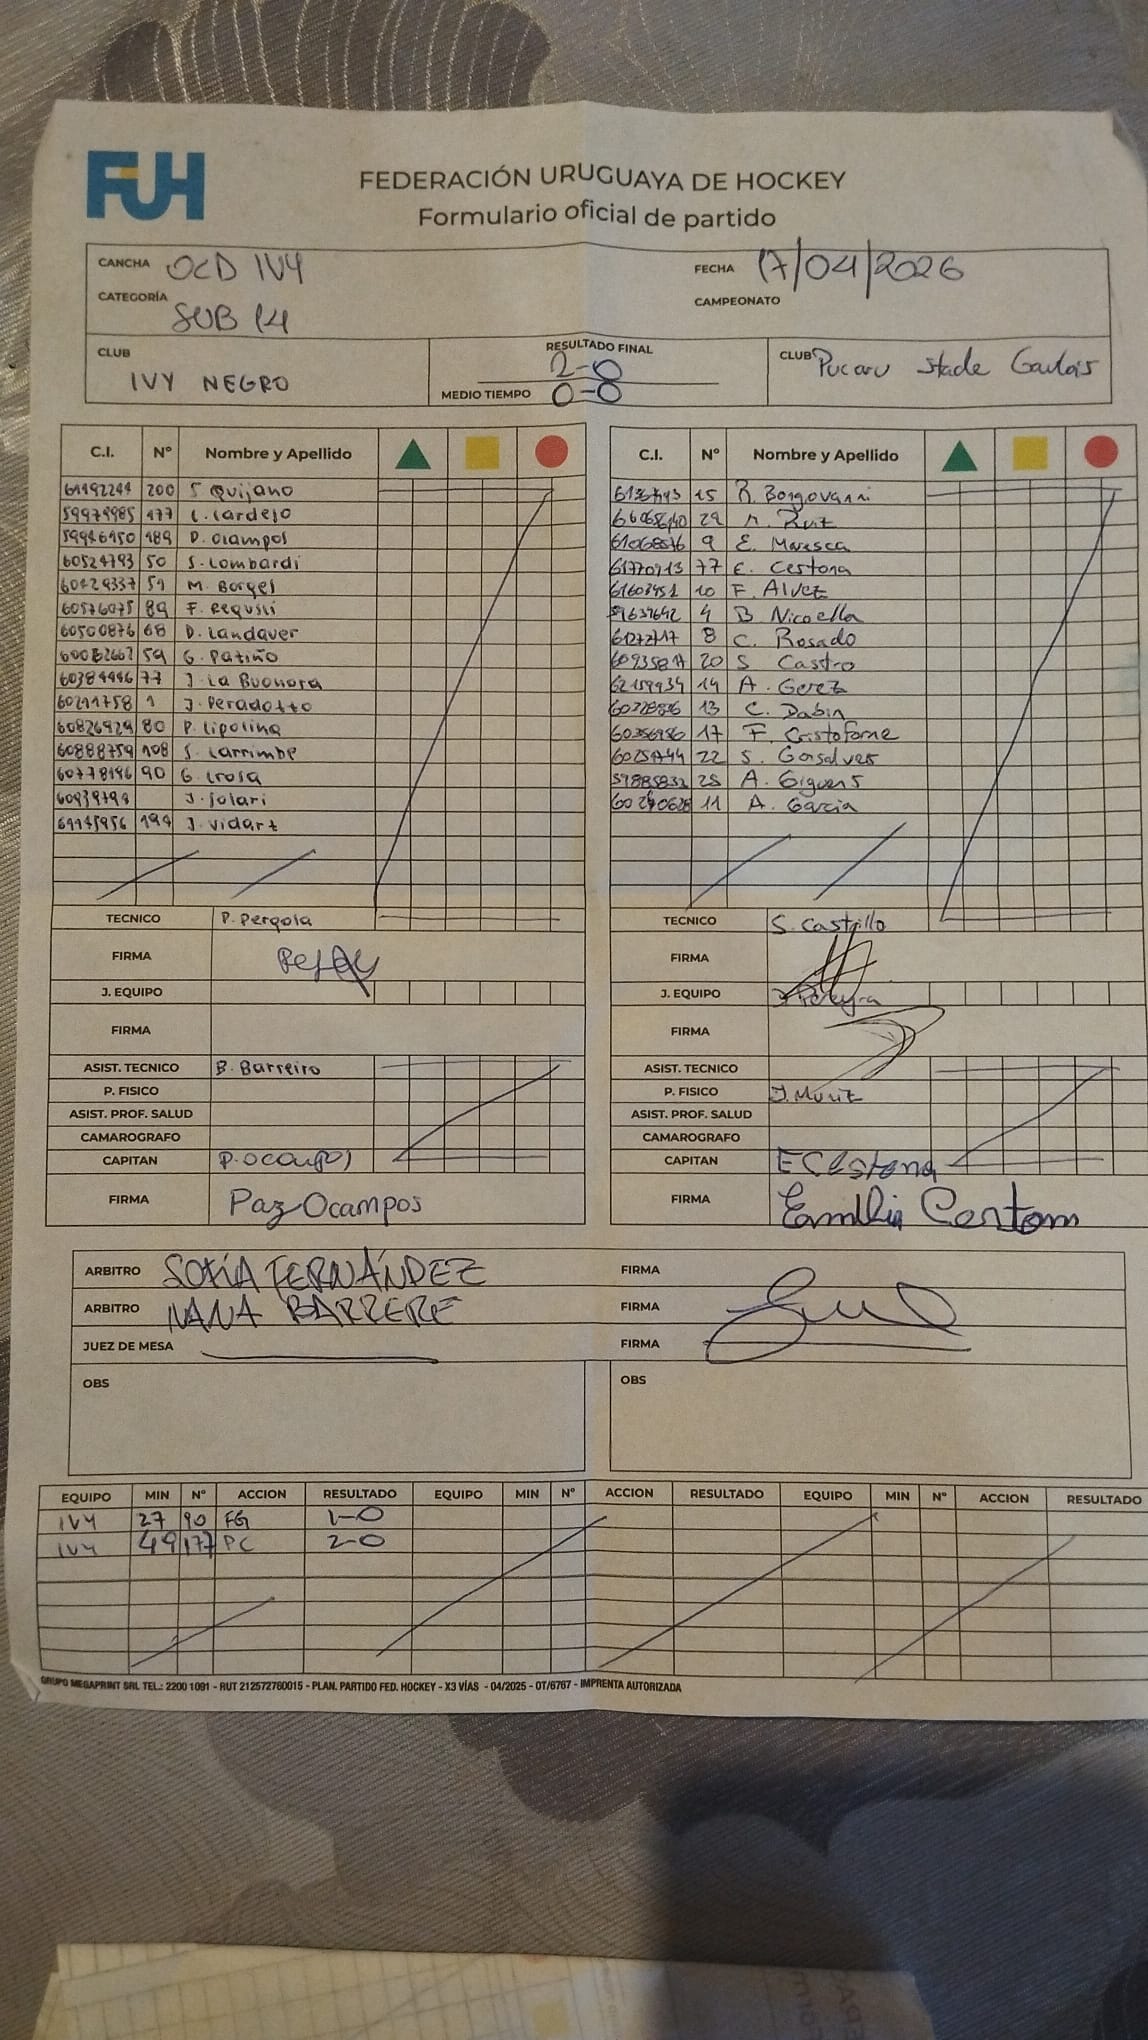 FUH
FEDERACIÓN URUGUAYA DE HOCKEY
Formulario oficial de partido
CANCHA OCD IVY FECHA 17/04/2026
CATEGORÍA SUB 14 CAMPEONATO
CLUB IVY NEGRO
RESULTADO FINAL 2-0
MEDIO TIEMPO 0-0
CLUB Pucaru Stade Gaulois
C.I. Nº Nombre y Apellido
200 S. Quijano
59979985 177 C. Cardejo
189 P. Ocampos
60524793 50 S. Lombardi
60429337 51 M. Borges
60576075 89 F. Regusci
60500876 68 D. Landauer
59 G. Patiño
77 J. La Buonora
60211758 1 J. Peradotto
60826929 80 P. Lipolina
60888759 108 S. Larrimbe
60778196 90 G. Crosa
J. Jolari
194 J. Vidart
TECNICO P. Pergola
FIRMA
J. EQUIPO
FIRMA
ASIST. TECNICO B. Barreiro
P. FISICO
ASIST. PROF. SALUD
CAMAROGRAFO
CAPITAN P. Ocampos
FIRMA Paz Ocampos
C.I. Nº Nombre y Apellido
15 R. Borgovanni
29 M. Ruiz
9 E. Maresca
61770913 77 E. Cestona
61603951 10 F. Alvez
4 B Nicoella
8 C. Rosado
20 S Castro
62159934 14 A. Gerez
13 C. Dabin
17 F. Cristoforne
22 S. Gonsalves
59885832 25 A. Giguens
11 A. Garcia
TECNICO S. Castrillo
FIRMA
J. EQUIPO Pereyra
FIRMA
ASIST. TECNICO
P. FISICO J. Muniz
ASIST. PROF. SALUD
CAMAROGRAFO
CAPITAN E Cestona
FIRMA Emilia Cestona
ARBITRO SOFÍA FERNÁNDEZ FIRMA
ARBITRO NANA BARRERE FIRMA
JUEZ DE MESA FIRMA
OBS OBS
EQUIPO MIN Nº ACCION RESULTADO EQUIPO MIN Nº ACCION RESULTADO EQUIPO MIN Nº ACCION RESULTADO
IVY 27 90 FG 1-0
IVY 49 177 PC 2-0
GRUPO MEGAPRINT SRL TEL.: 2200 1091 - RUT 212572780015 - PLAN. PARTIDO FED. HOCKEY - X3 VÍAS - 04/2025 - OT/6767 - IMPRENTA AUTORIZADA